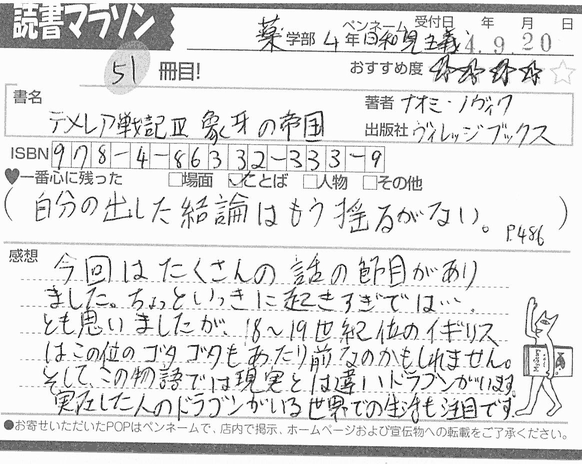 読書マラソン
ペンネーム 受付日 年 月 日
薬学部 4年 日和見主義 4.9.20
51冊目! おすすめ度 ☆☆☆☆☆
書名
テメレア戦記Ⅳ 象牙の帝国
著者 ナオミ・ノヴィク
出版社 ヴィレッジブックス
ISBN 978-4-86332-333-9
♥一番心に残った □場面 ☑ことば □人物 □その他
(自分の出した結論はもう揺るがない。 P.486)
感想
今回はたくさんの話の節目があり
ました。ちょっといっきに起きすぎでは…、
とも思いましたが、18〜19世紀位のイギリス
はこの位のゴタゴタもあたり前なのかもしれません。
そして、この物語では現実とは違いドラゴンがいます。
実在した人のドラゴンがいる世界での生活も注目です。
●お寄せいただいたPOPはペンネームで、店内で掲示、ホームページおよび宣伝物への転載をご了承ください。